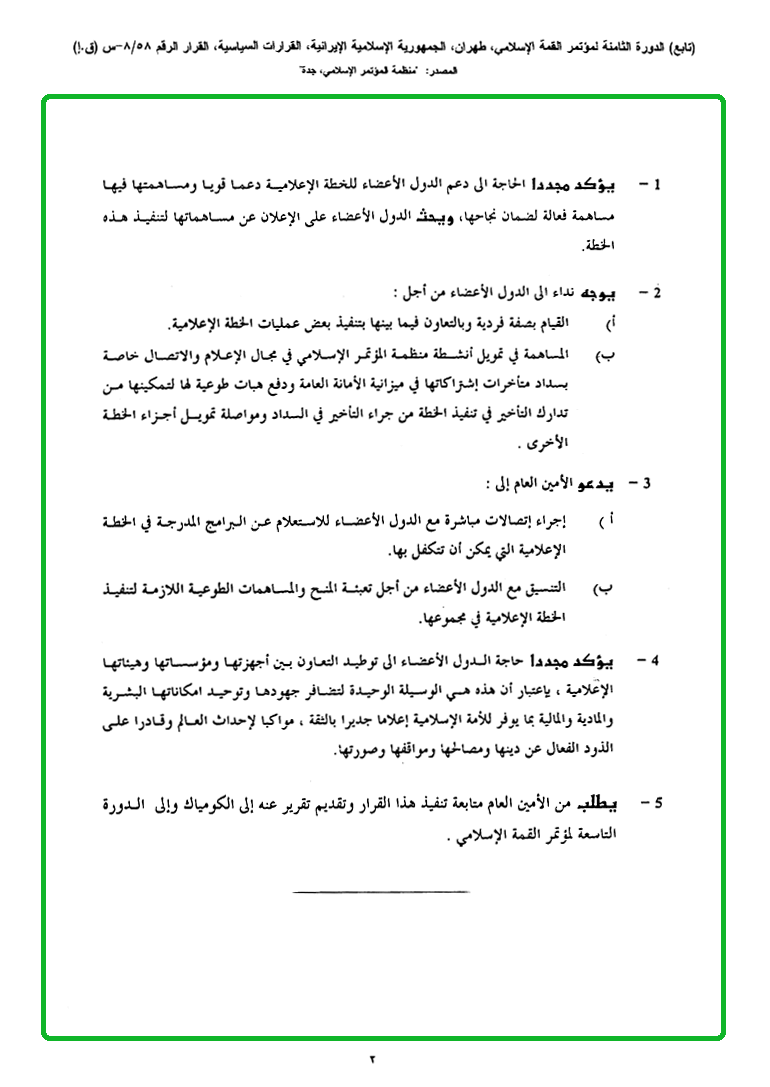 (تابع) الدورة الثامنة لمؤتمر القمة الإسلامي، طهران، الجمهورية الإسلامية الإيرانية، القرارات السياسية، القرار الرقم ٨/٥٨-س (ق.إ)
المصدر: "منظمة المؤتمر الإسلامي، جدة"
1 - يؤكد مجددا الحاجة الى دعم الدول الأعضاء للخطة الإعلامية دعما قويا ومساهمتها فيها
مساهمة فعالة لضمان نجاحها، ويحث الدول الأعضاء على الإعلان عن مساهماتها لتنفيذ هذه
الخطة.
2 - يوجه نداء الى الدول الأعضاء من أجل :
أ) القيام بصفة فردية وبالتعاون فيما بينها بتنفيذ بعض عمليات الخطة الإعلامية.
ب) المساهمة في تمويل أنشطة منظمة المؤتمر الإسلامي في مجال الإعلام والاتصال خاصة
بسداد متأخرات إشتراكاتها في ميزانية الأمانة العامة ودفع هبات طوعية لها لتمكينها من
تدارك التأخير في تنفيذ الخطة من جراء التأخير في السداد ومواصلة تمويل أجزاء الخطة
الأخرى .
3 - يدعو الأمين العام إلى :
أ ) إجراء إتصالات مباشرة مع الدول الأعضاء للاستعلام عن البرامج المدرجة في الخطة
الإعلامية التي يمكن أن تتكفل بها.
ب) التنسيق مع الدول الأعضاء من أجل تعبئة المنح والمساهمات الطوعية اللازمة لتنفيذ
الخطة الإعلامية في مجموعها.
4 - يؤكد مجددا حاجة الدول الأعضاء الى توطيد التعاون بين أجهزتها ومؤسساتها وهيئاتها
الإعلامية ، باعتبار أن هذه هي الوسيلة الوحيدة لتضافر جهودها وتوحيد امكاناتها البشرية
والمادية والمالية بما يوفر للأمة الإسلامية إعلاما جديرا بالثقة ، مواكبا لإحداث العالم وقادرا على
الذود الفعال عن دينها ومصالحها ومواقفها وصورتها.
5 - يطلب من الأمين العام متابعة تنفيذ هذا القرار وتقديم تقرير عنه إلى الكومياك وإلى الدورة
التاسعة لمؤتمر القمة الإسلامي .
٢